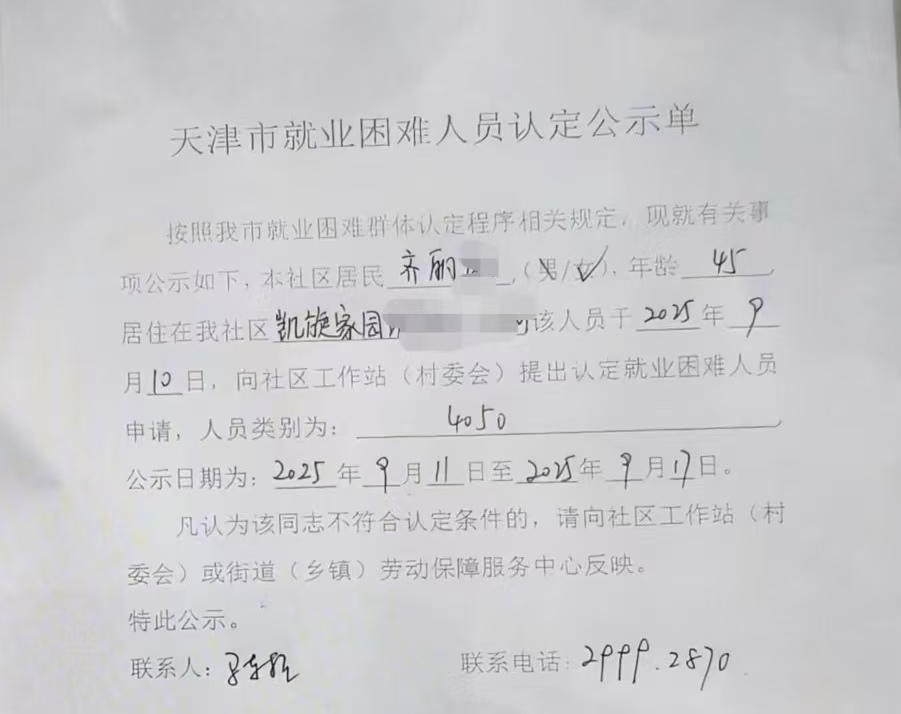 天津市就业困难人员认定公示单
按照我市就业困难群体认定程序相关规定，现就有关事
项公示如下，本社区居民齐丽（男/女），年龄 45
居住在我社区凯旋家园 该人员于2025年 9
月10日，向社区工作站（村委会）提出认定就业困难人员
申请，人员类别为：4050
公示日期为：2025年9月11日至2025年9月17日。
凡认为该同志不符合认定条件的，请向社区工作站（村
委会）或街道（乡镇）劳动保障服务中心反映。
特此公示。
联系人： 联系电话：2999.2870